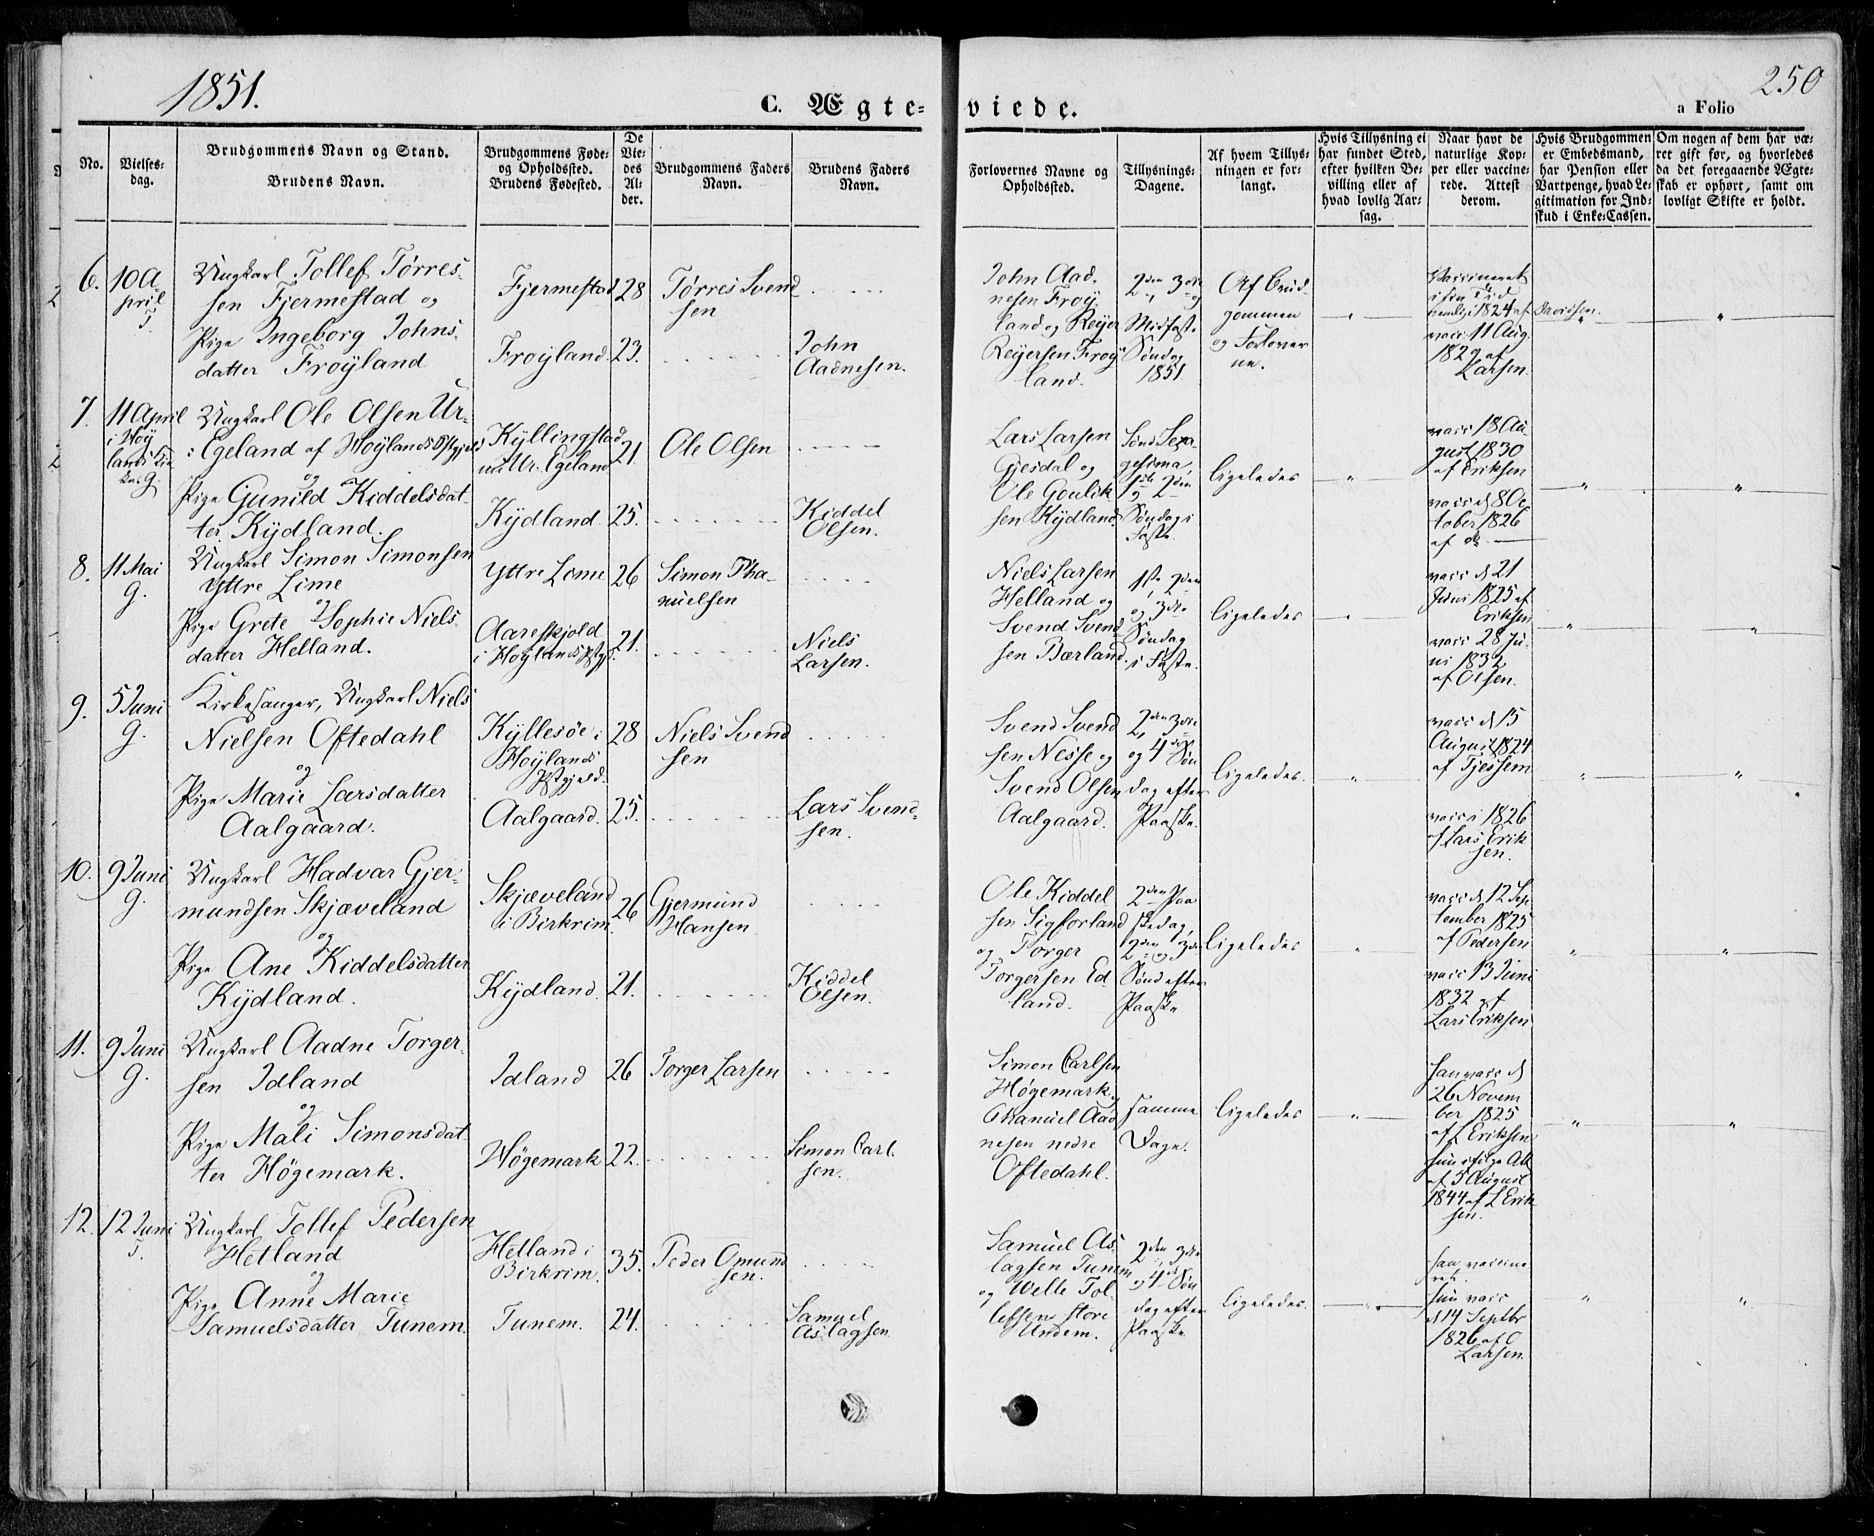 1851.
C. Ægte-
viede.
250
a Folio
No.
Vielses-
dag.
Brudgommens Navn og Stand.
Brudens Navn.
Brudgommens Føde-
og Opholdssted.
Brudens Fødested.
De
Vie-
des
Al-
der.
Brudgommens Faders
Navn.
Brudens Faders
Navn.
Forlovernes Navne og
Opholdssted.
Tillysnings-
Dagene.
Af hvem Tillys-
ningen er for-
langt.
Hvis Tillysning ei
har fundet Sted,
efter hvilken Be-
villing eller af
hvad lovlig Aar-
sag.
Naar havt de
naturlige Kop-
per eller vaccine-
rede. Attest
derom.
Hvis Brudgommen
er Embedsmand,
har Pension eller
Vartpenge, hvad Le-
gitimation for Ind-
skud i Enke-Cassen.
Om nogen af dem har væ-
ret gift før, og hvorledes
da det foregaaende Ægte-
skab er ophørt, samt om
lovligt Skifte er holdt.
6.
10 A
pril
T.
Ungkarl Tollef Tørres-
sen Fjermestad og
Pige Ingeborg Johns-
datter Frøyland
Fjermestad
Frøyland.
28
23.
Tørres Svend
sen
John
Aadnesen.
John Aad-
nesen Frøy-
land og Reijer
Reijersen Frøy
land.
2den 3die
og
Midfaste
Søndag
1851
Af Brud-
gommen
og Forlover
ne.
Vaccineret
i sin Tid
1824 af
vacc 11 Aug.
1829 af
Larsen.
7.
11 April
i Høy
lands Kir
ke. G.
Ungkarl Ole Olsen Ur-
Egeland af Høylands Pstgjeld
og
Pige Gunild Kiddelsdat-
ter Kydland.
Kyllingstad
Ur. Egeland
Kydland.
21
25.
Ole Olsen
Kiddel
Olsen.
Lars Larsen
Gjesdal og
Ole Goulik
sen Kydland
Sønd. Sexa
gesima,
1ste og 2den
Søndag i
Faste.
ligeledes
vacc 18 Au
gust 1830
af Eriksen
vacc d 8 Oc
tober 1826
af do
8.
11 Mai
G.
Ungkarl Simon Simonsen
Yttre Lime
og
Pige Grete Sophie Niels-
datter Helland.
Yttre Lime
Aareskjold
i Høylands Pstgj.
26
21.
Simon Tha-
nielsen
Niels
Larsen.
Niels Larsen
Helland og
Svend Svend
sen Bærland.
1ste, 2den
og 3die
Søndag
i Faste.
ligeledes
vacc d 21
Juni 1825 af
Eriksen
vacc 28 Ju-
ni 1832
af Olsen.
9.
5 Juni
G.
Kirkesanger, Ungkarl Niels
Nielsen Oftedahl
og
Pige Marie Larsdatter
Aalgaard.
Kyllesøe i
Høylands
Pstgjeld.
Aalgaard.
28
25.
Niels Svend
sen
Lars Svend-
sen.
Svend Svend
sen Nesse og
Svend Olsen
Aalgaard.
2den 3die
og 4de Søn
dag efter
Paaske.
ligeledes.
vacc d 15
August 1824
af Tjessem
vacc i 1826
af Lars Erik
sen.
10.
9 Juni
G.
Ungkarl Hadvar Gjer-
mundsen Skjæveland
og
Pige Ane Kiddelsdatter
Kydland.
Skjæveland
i Birkrim.
Kydland.
26
21.
Gjermund
Hansen
Kiddel
Olsen.
Ole Kiddel
sen Sigforland
og Torger
Torgersen Ed-
land.
2den Paa
skedag,
2den og 3die
Sønd efter
Paaske
ligeledes
vacc d 12 Sep
tember 1825
af Pedersen
vacc 13 Juni
1832 af
Lars Eriksen
11.
9 Juni
G.
Ungkarl Aadne Torger-
sen Idland
og
Pige Mali Simonsdat-
ter Høgemark.
Idland
Høgemark
26
22.
Torger Larsen
Simon Carl-
sen.
Simon Carlsen
Høgemark,
Thanuel Aad
nesen nedre
Oftedahl.
samme
Dage.
ligeledes
han vacc d
26 Novem
ber 1825
af L Eriksen
hun ifølge Att
af 5 August
1844 af L Erik
sen.
12.
12 Juni
T.
Ungkarl Tollef Pedersen
Hetland
og
Pige Anne Marie
Samuelsdatter Tunem.
Hetland i
Birkrim.
Tunem.
35.
24.
Peder Omund
sen.
Samuel
Aslagsen
Samuel As-
lagsen Tunem
og Welle Tol-
lefsen store
Undem.
2den 3die
og 4de Søn
dag efter
Paaske
ligeledes.
han vaccine
ret.
hun vacc
d 14 Septbr
1826 af O
Larsen.